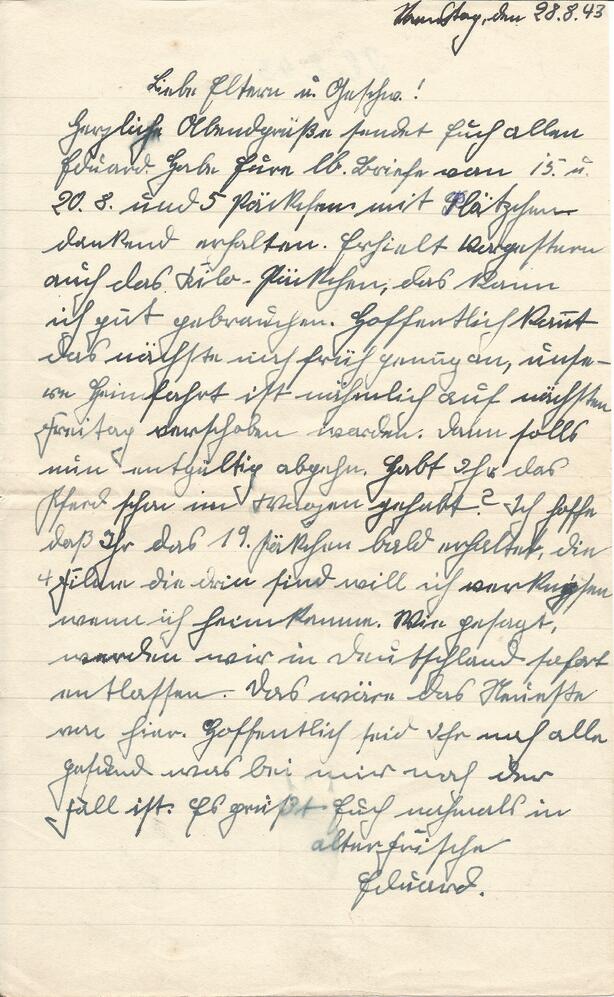 Samstag, den 28.8.43
Liebe Eltern u. Geschw.!
Herzliche Abendgrüße sendet Euch allen
Eduard. Habe Eure lb. Briefe von 15. u.
20. 8. und 5 Päckchen mit Plätzchen
dankend erhalten. Erhielt vorgestern
auch das Kilo-Päckchen, das kann
ich gut gebrauchen. Hoffentlich kommt
das nächste noch früh genug an, unse-
re Heimfahrt ist nähmlich auf nächsten
Freitag verschoben worden. Dann solls
nun entgültig abgehn. Habt Ihr das
Pferd schon im Wagen gehabt? Ich hoffe
daß Ihr das 19. Päckchen bald erhaltet, die
4 Filme die drin sind will ich verknipsen
wenn ich heimkomme. Wie gesagt,
werden wir in Deutschland sofort
entlassen. Das wäre das Neueste
von hier. Hoffentlich seid Ihr noch alle
gesund was bei mir noch der
Fall ist. Es grüßt Euch nochmals in
alter Frische
Eduard.